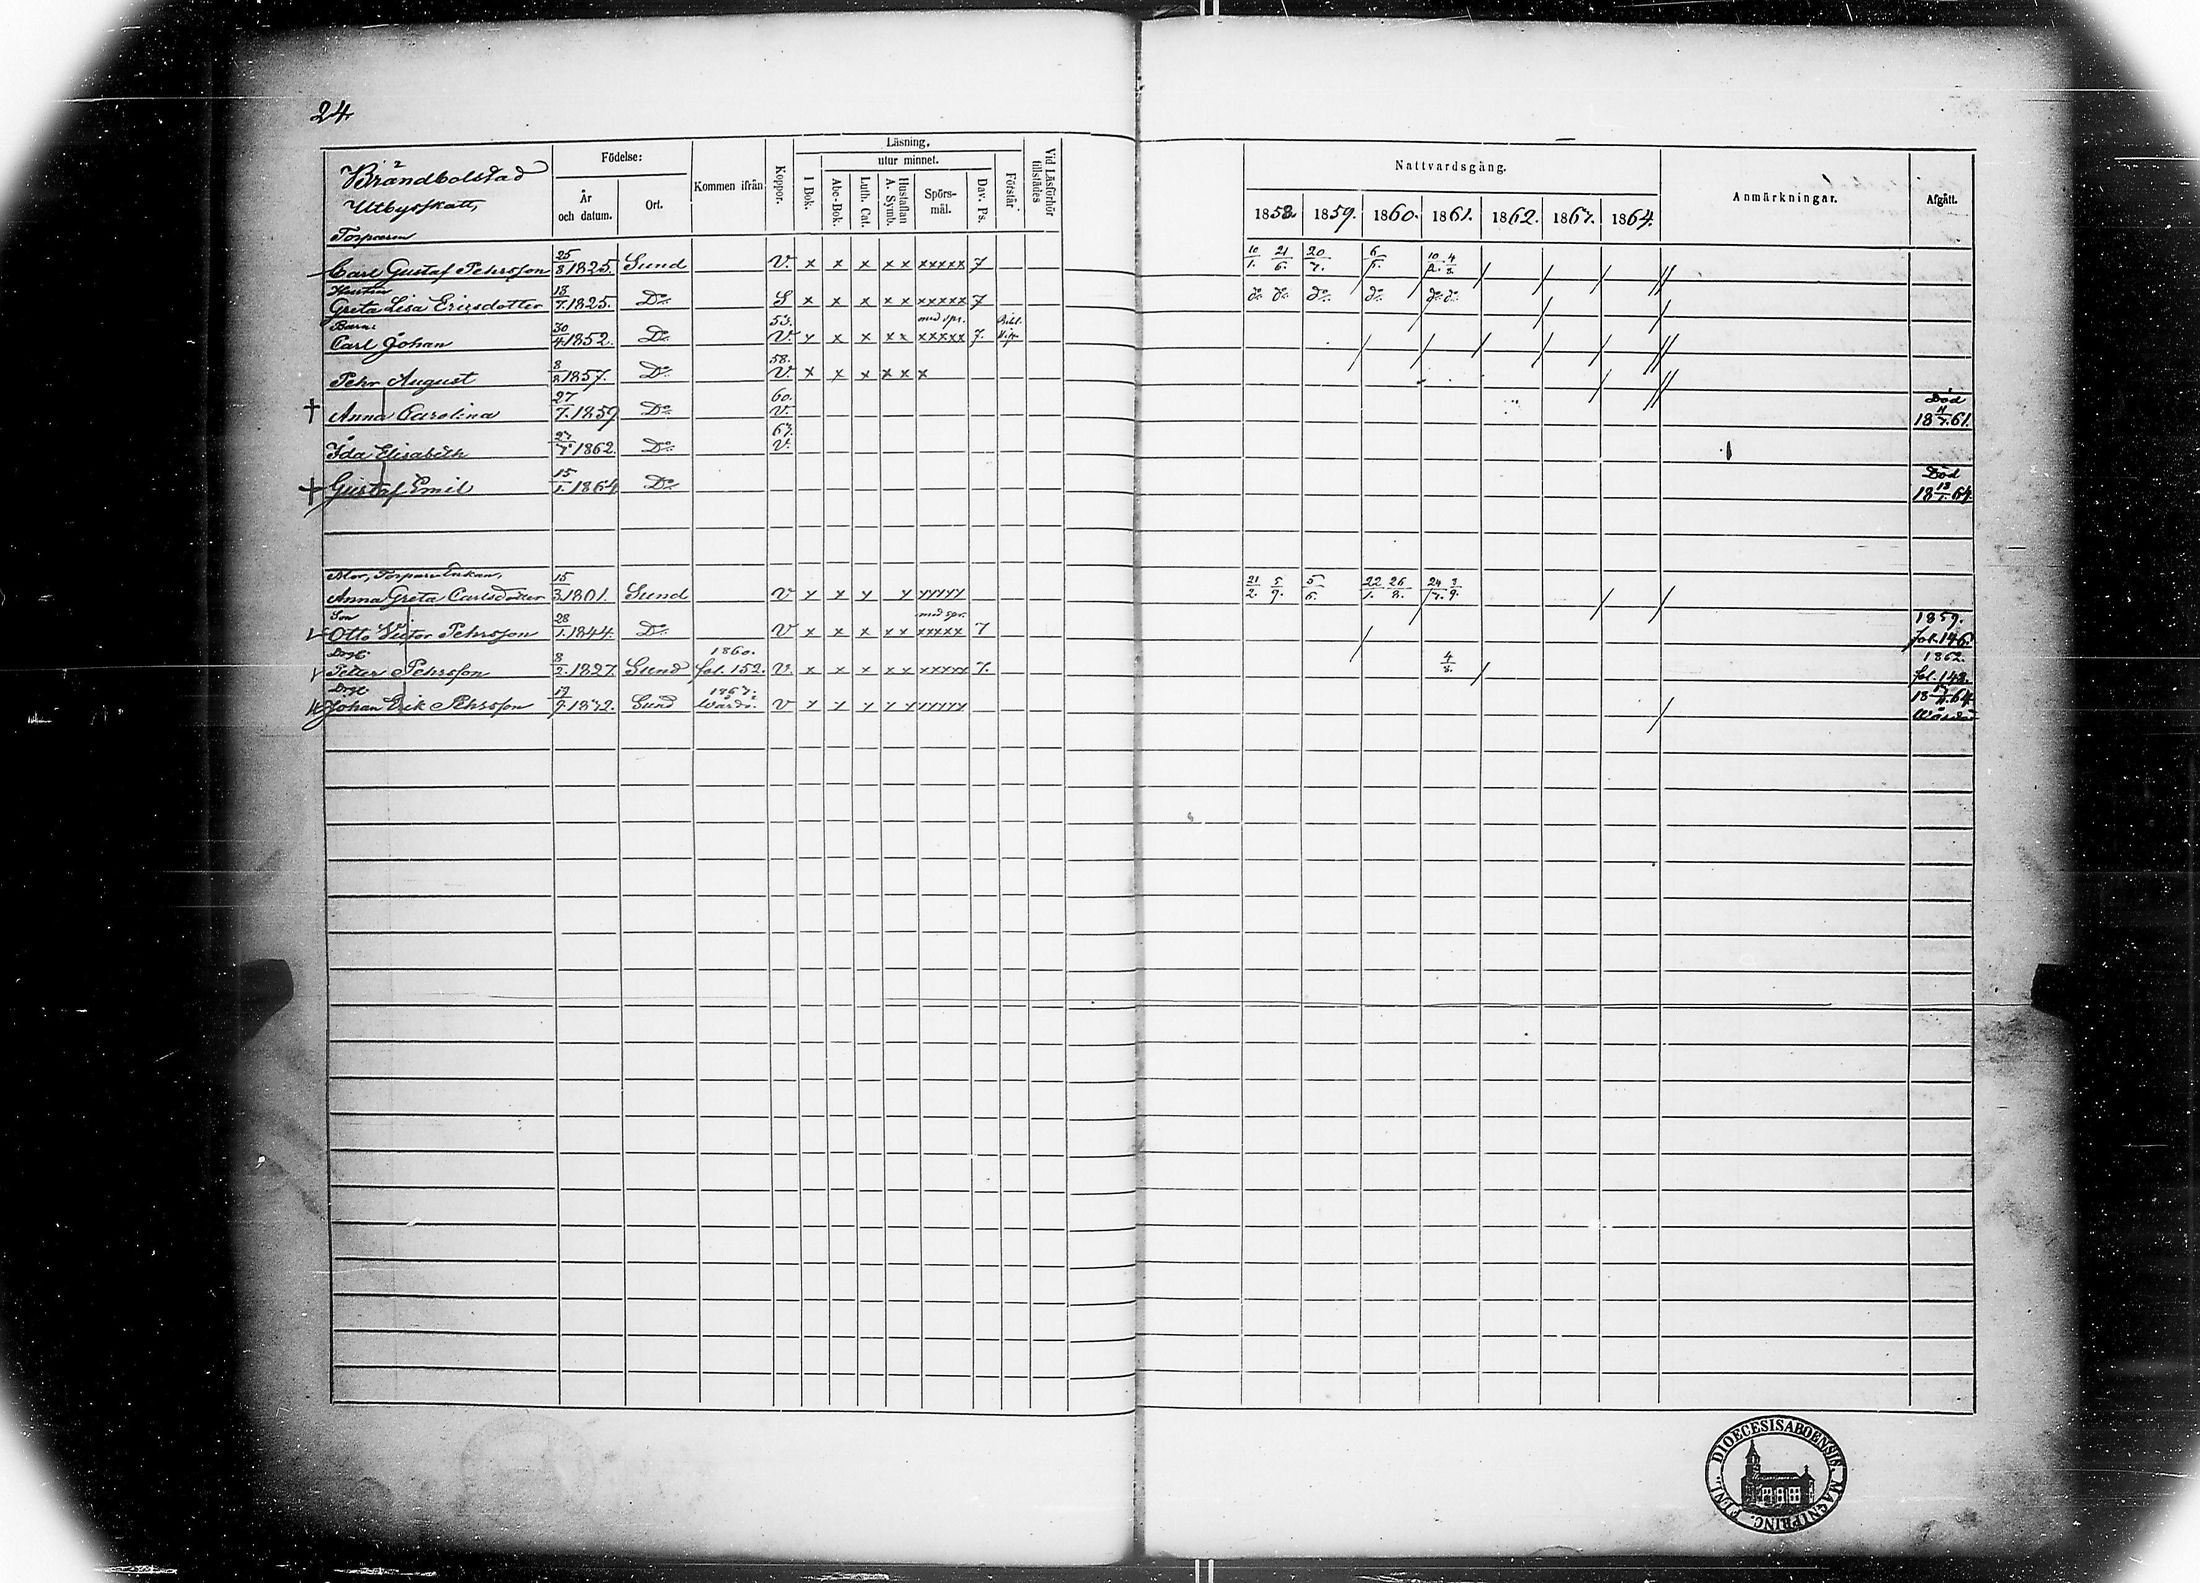 24.
Brändbolstad
Utbysskatt,
Födelse:
År och datum.
Ort.
Kommen ifrån
Koppor.
Läsning,
I Bok.
utur minnet.
Abc-Bok.
Luth. Cat.
Hustaflan A. Symb.
Spörs-mål.
Dav. Ps.
Förstår
Vid Läsförhör tillstädes
Nattvardsgång.
1858. 1859. 1860. 1861. 1862. 1863. 1864.
Anmärkningar.
Afgått.
Torparen
Carl Gustaf Pehrsson 25/8 1825. Sund V. x x x x x xxxxx 7 10/1. 21/6. 20/7. 10/2. 4/8.
Hustru
Greta Lisa Ericsdotter 18/7. 1825. Do S x x x x x xxxxx 7 do do do do do do
Barn:
Carl Johan 30/4 1852. Do 53. V. x x x x x med spr. xxxxx 7.
Pehr August 8/8 1857. Do 58. V. x x x x x x
† Anna Carolina 27/7. 1859 Do 60. V. Död 18 61.
Ida Elisabeth 1862. Do 63. V.
† Gustaf Emil 15/1. 1864 Do Död 18 18/1. 64
Mor, Torpare Enkan,
Anna Greta Carlsdotter 15/3. 1801. Sund V x x x x xxxxx 21/2. 5/9. 5/6. 22/1. 26/8. 24/7. 3/9.
Son
Otto Victor Pehrsson 28/1. 1844. Do V x x x x x med spr. xxxxx 7 1859. fol. 146.
Petter Pehrsson 8/2. 1827. Sund 1860. fol. 152. V. x x x x x xxxxx 7. 4/8. 1862. fol. 148.
Johan Erik Pehrsson Sund 1863. Vårdö. V x x x x x xxxxx 18 64 Vårdö
FINL. DIOECESIS ABOENSIS. MAGNI PRINC.